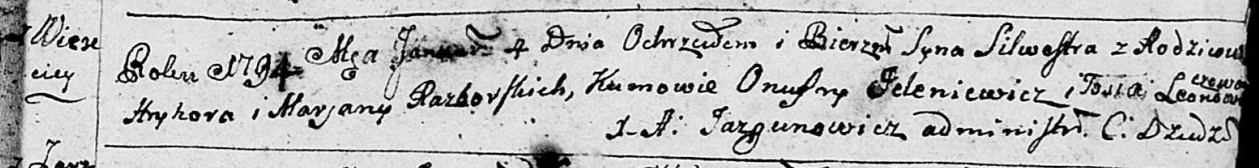 Wiere
ciey
Roku 1794 Mca Januar 4 Dnia Ochrzciłem i Bierzm Syna Silwestra z Rodzicow
Hryhora i Maryany Razborskich, Kumowie Onufry Jeleniewicz i Tosia Leonowa
X. A: Jazgunowicz administr. C: Dzudz